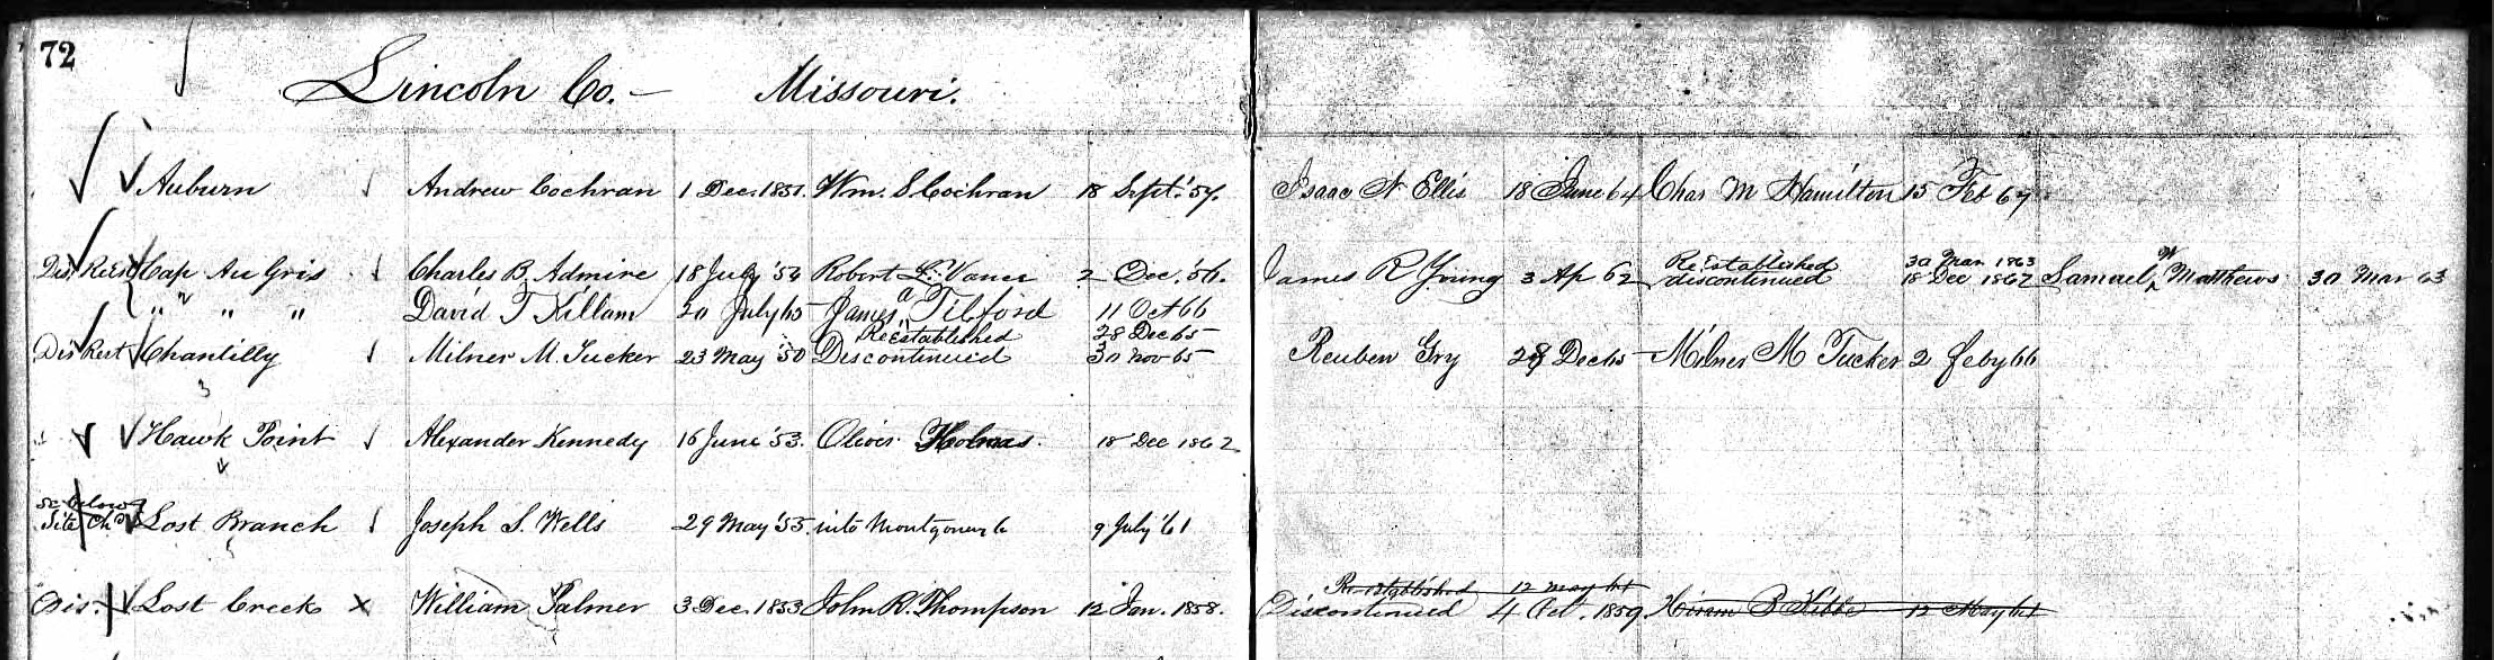 72
Lincoln Co. — Missouri.
Auburn Andrew Cochran 1 Dec. 1851. Wm. S. Cochran 18 Sept. '57. Isaac N Ellis 18 June 64 Chas M Hamilton 15 Feb 67
Re Established 30 Mar 1863 W
Dis Rees Cap Au Gris Charles B. Admire 18 July '54 Robert Vance 2 Dec. '56. James R Young 3 Ap 62 discontinued 18 Dec 1862 Samuel Matthews 30 Mar 63
" " " David T Killam 20 July 65 James A Tilford 11 Oct 66
ReEstablished 28 Dec 65
Dis Reest Chantilly Milner M. Tucker 23 May '50 Discontinued 30 Nov 65 Reuben 28 Dec 65 Milner M Tucker 2 Feby 66
Hawk Point Alexander Kennedy 16 June '53. Oliver Holmes. 18 Dec 1862
Se below
Site Chd Lost Branch Joseph S. Wells 29 May '55. into Montgomery Co 9 July '61
Re-established 12 May
Dis. Lost Creek X William Palmer 3 Dec. 1853 John R. Thompson 12 Jan. 1858. Discontinued 4 Oct. 1859. Hiram 12 May